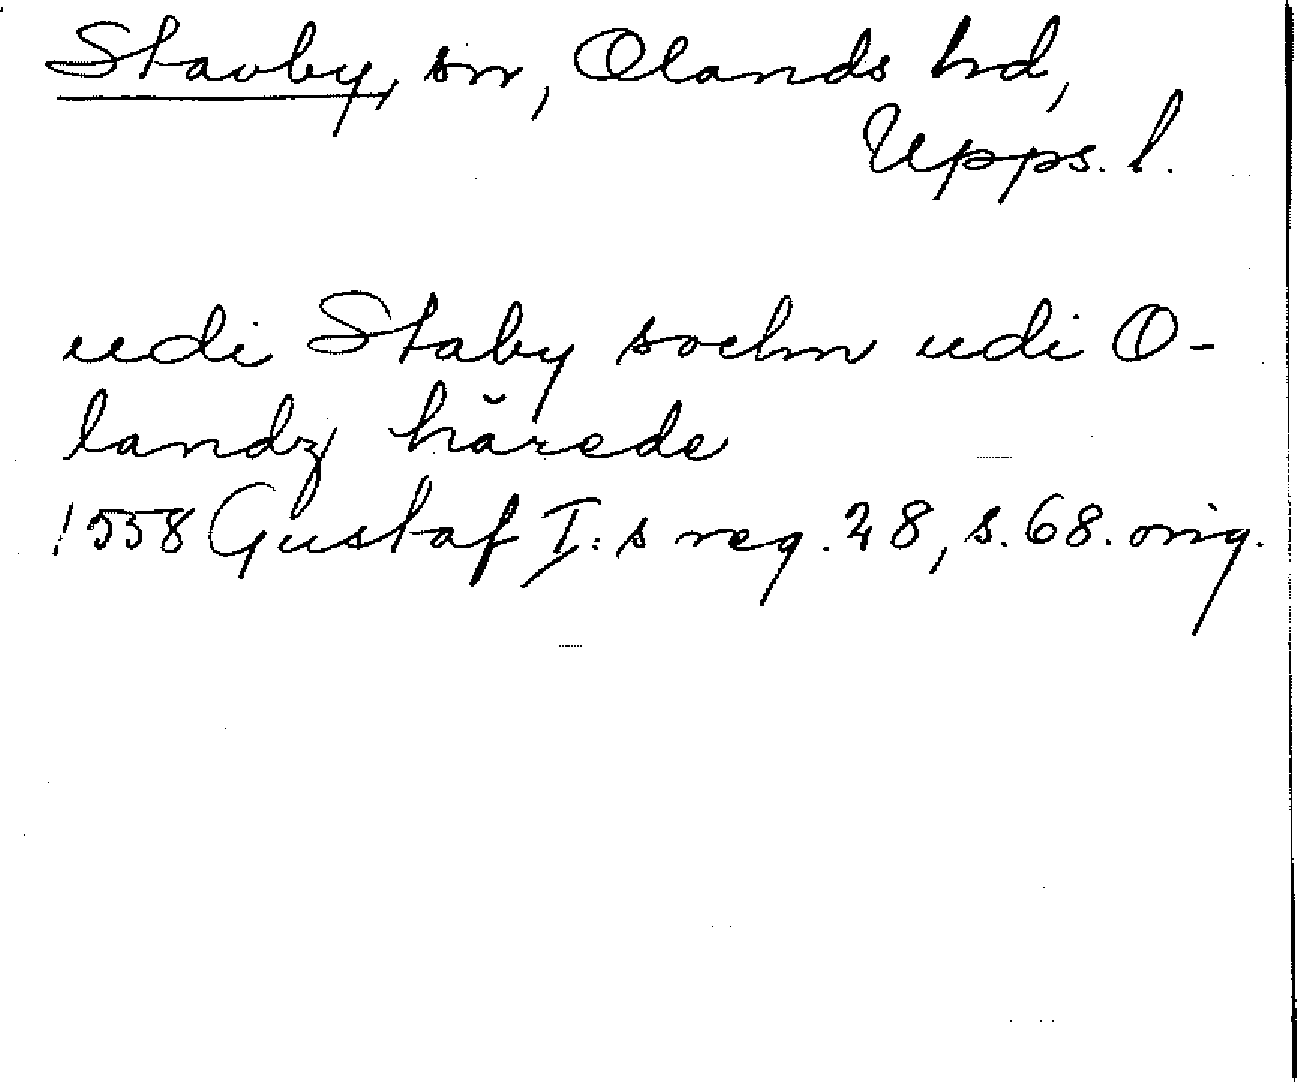 Stavby, sn, Olands hd,
Upps. l.
udi Staby sochn udi O-
landz härede
1558 Gustaf I:s reg. 28, s. 68. orig.